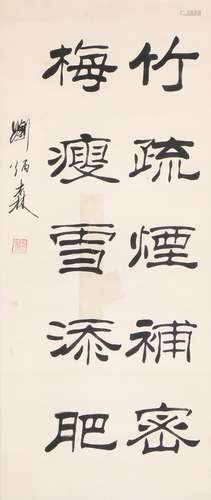 竹疏煙補密
梅瘦雪添肥
劉炳森